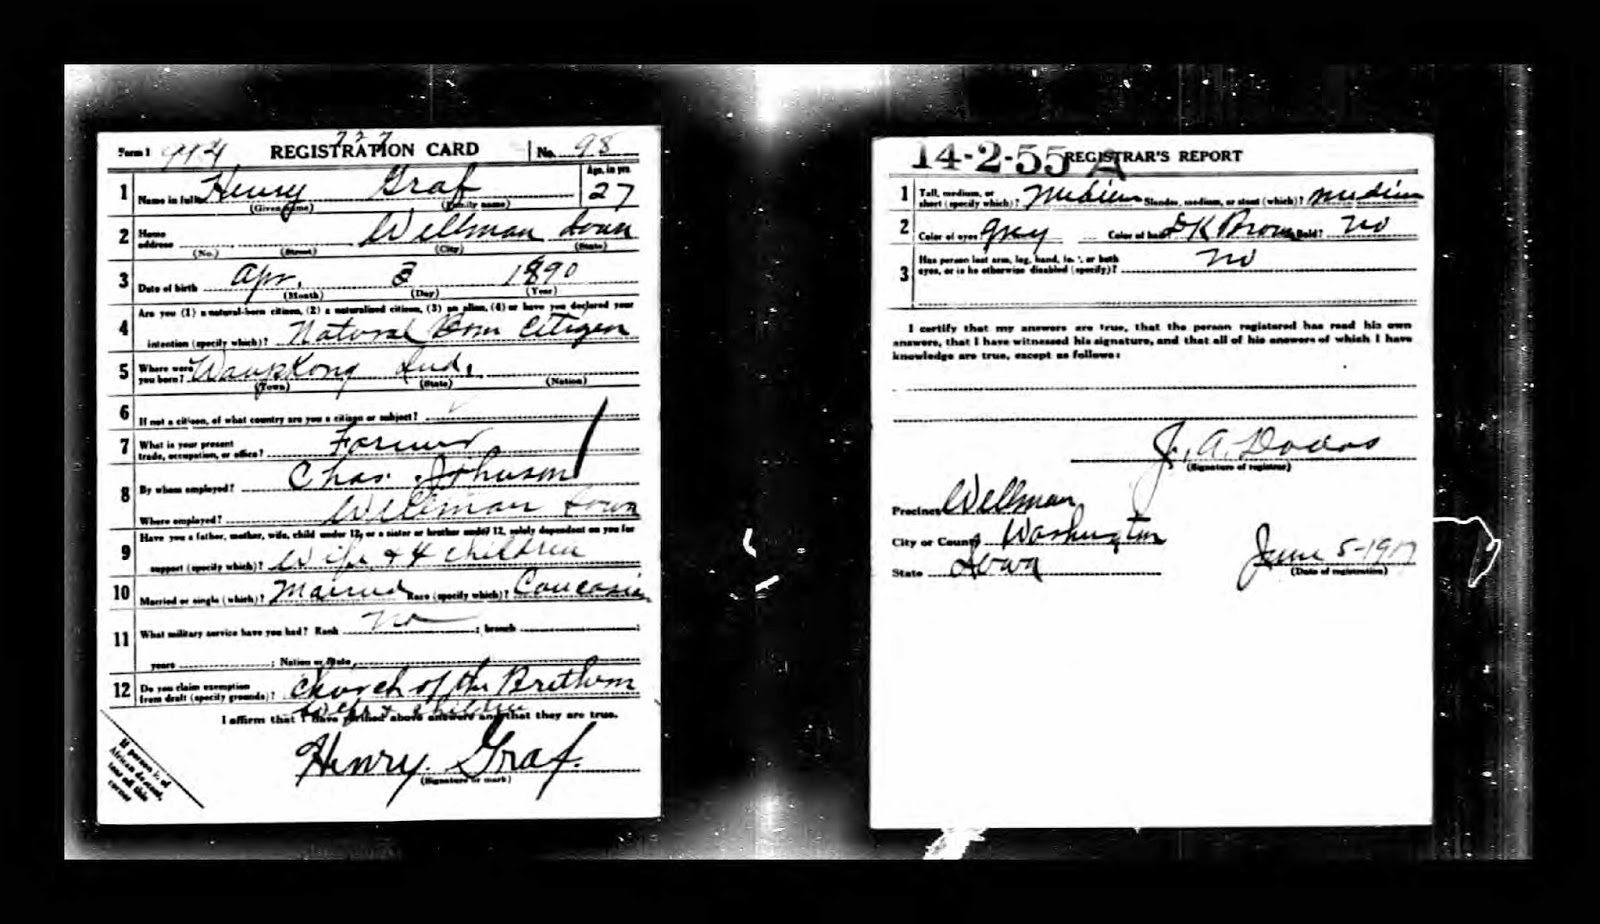 Form 1 914 727 REGISTRATION CARD No. 98
Age, in yrs.
1 Name in full Henry Graf 27
(Given name) (Family name)
2 Home address Wellman Iowa
(No.) (Street) (City) (State)
3 Date of birth Apr. 3 1890
(Month) (Day) (Year)
4 Are you (1) a natural-born citizen, (2) a naturalized citizen, (3) an alien, (4) or have you declared your
intention (specify which)? Natural Born Citizen
5 Where were you born? Waupkong Ind.
(Town) (State) (Nation)
6 If not a citizen, of what country are you a citizen or subject?
7 What is your present trade, occupation, or office? Farmer
8 By whom employed? Chas. Johnson
Where employed? Wellman Iowa
9 Have you a father, mother, wife, child under 12, or a sister or brother under 12, solely dependent on you for
support (specify which)? Wife & 4 children
10 Married or single (which)? Married Race (specify which)? Caucasian
11 What military service have you had? Rank No ; branch ;
years ; Nation or State
12 Do you claim exemption from draft (specify grounds)? Church of the Brethern
Wife & children
I affirm that I have verified above answers and that they are true.
Henry Graf.
(Signature or mark)
If person is of
African descent,
tear off this
corner
14-2-55 A REGISTRAR'S REPORT
1 Tall, medium, or short (specify which)? Medium Slender, medium, or stout (which)? Medium
2 Color of eyes Grey Color of hair DK Brown Bald? No
3 Has person lost arm, leg, hand, foot, or both eyes, or is he otherwise disabled (specify)? No
I certify that my answers are true, that the person registered has read his own
answers, that I have witnessed his signature, and that all of his answers of which I have
knowledge are true, except as follows:
J. A. Dodds
(Signature of registrar)
Precinct Wellman
City or County Washington
State Iowa
June 5-1917
(Date of registration)